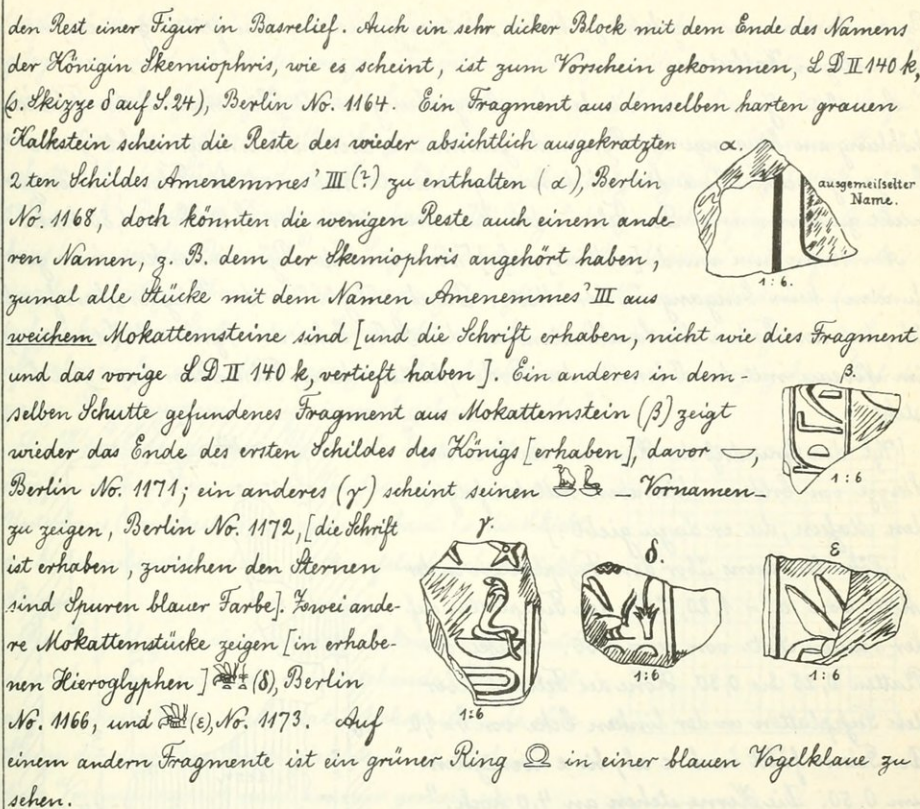 den Rest einer Figur in Basrelief. Auch ein sehr dicker Block mit dem Ende des Namens
der Königin Skemiophris, wie es scheint, ist zum Vorschein gekommen, L D II 140 k,
(s. Skizze δ auf S. 24), Berlin No. 1164. Ein Fragment aus demselben harten grauen
Kalkstein scheint die Reste des wieder absichtlich ausgekratzten
α.
2 ten Schildes Amenemmes' III (?) zu enthalten (α), Berlin
ausgemeißelter
Name.
No. 1168, doch könnten die wenigen Reste auch einem ande-
ren Namen, z. B. dem der Skemiophris angehört haben,
1 : 6.
zumal alle Stücke mit dem Namen Amenemmes' III aus
weichem Mokattemsteine sind [und die Schrift erhaben, nicht wie dies Fragment
und das vorige L D II 140 k, vertieft haben]. Ein anderes in dem-
β.
selben Schutte gefundenes Fragment aus Mokattemstein (β) zeigt
wieder das Ende des ersten Schildes des Königs [erhaben], davor 𓎟,
1 : 6
Berlin No. 1171; ein anderes (γ) scheint seinen Vornamen
zu zeigen, Berlin No. 1172, [die Schrift
γ.
ist erhaben, zwischen den Sternen
δ
ε
sind Spuren blauer Farbe]. Zwei ande-
re Mokattemstücke zeigen [in erhabe-
nen Hieroglyphen] (δ), Berlin
1:6
1:6
No. 1166, und (ε), No. 1173. Auf
1:6
einem andern Fragmente ist ein grüner Ring 𓍶 in einer blauen Vogelklaue zu
sehen.